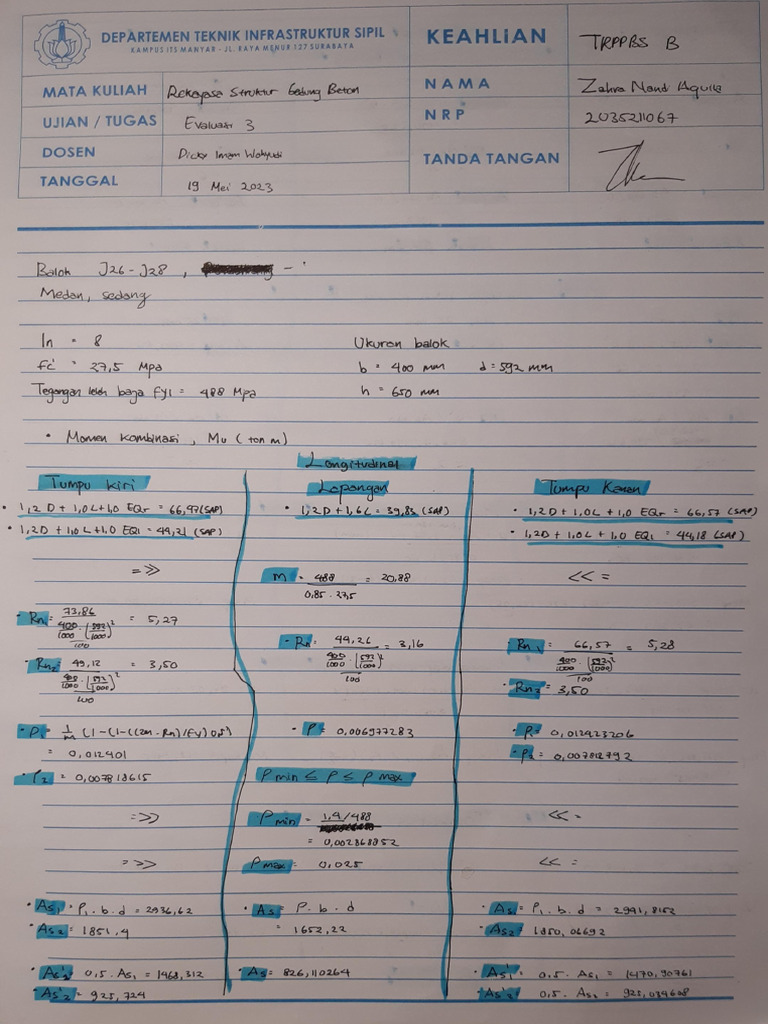 DEPARTEMEN TEKNIK INFRASTRUKTUR SIPIL
KAMPUS ITS MANYAR - JL. RAYA MENUR 127 SURABAYA
KEAHLIAN TRPPBS B
MATA KULIAH Rekayasa Struktur Gedung Beton
NAMA Zahra Nand Aquila
UJIAN / TUGAS Evaluasi 3
NRP 2035211067
DOSEN Dicky Imam Wahyudi
TANDA TANGAN
TANGGAL 19 Mei 2023
Balok J26-J28, -
Medan, sedang
ln = 8 Ukuran balok
fc' = 27,5 Mpa b = 400 mm d = 592 mm
Tegangan leleh baja fy1 = 488 Mpa h = 650 mm
• Momen Kombinasi, Mu (ton m)
Longitudinal
Tumpu Kiri Lapangan Tumpu Kanan
• 1,2 D + 1,0 L + 1,0 EQr = 66,47 (SAP) • 1,2 D + 1,6 L = 39,83 (SAP) • 1,2 D + 1,0 L + 1,0 EQr = 66,57 (SAP)
• 1,2 D + 1,0 L + 1,0 EQl = 44,21 (SAP) • 1,2 D + 1,0 L + 1,0 EQl = 44,18 (SAP)
=>> m = 488 / 0,85 . 27,5 = 20,88 <<=
• Rn1 = 73,86 / 400/1000 . (592/1000)² / 100 = 5,27 • Rn = 44,26 / 400/1000 (592/1000)² / 100 = 3,16 • Rn1 = 66,57 / 400/1000 (592/1000)² / 100 = 5,28
• Rn2 = 49,12 / 400/1000 . (592/1000)² / 100 = 3,50 • Rn2 = 3,50
• ρ1 = 1/m (1-(1-((2m . Rn)/fy)0,5) • ρ = 0,006977283 • ρ1 = 0,012423206
= 0,012401 • ρ2 = 0,007812792
• ρ2 = 0,007818615 ρ min ≤ ρ ≤ ρ max
=>> ρ min = 1,4/488 <<=
= 0,002868852
=>> ρ max = 0,025 <<=
• As1 = ρ1 . b . d = 2936,62 • As = ρ . b . d • As1 = ρ1 . b . d = 2941,8152
As2 = 1851,4 = 1652,22 As2 = 1850,06692
• As'1 = 0,5 . As1 = 1468,312 • As = 826,110264 • As'1 = 0,5 . As1 = 1470,90761
As'2 = 925,724 As'2 = 0,5 . As2 = 925,034608